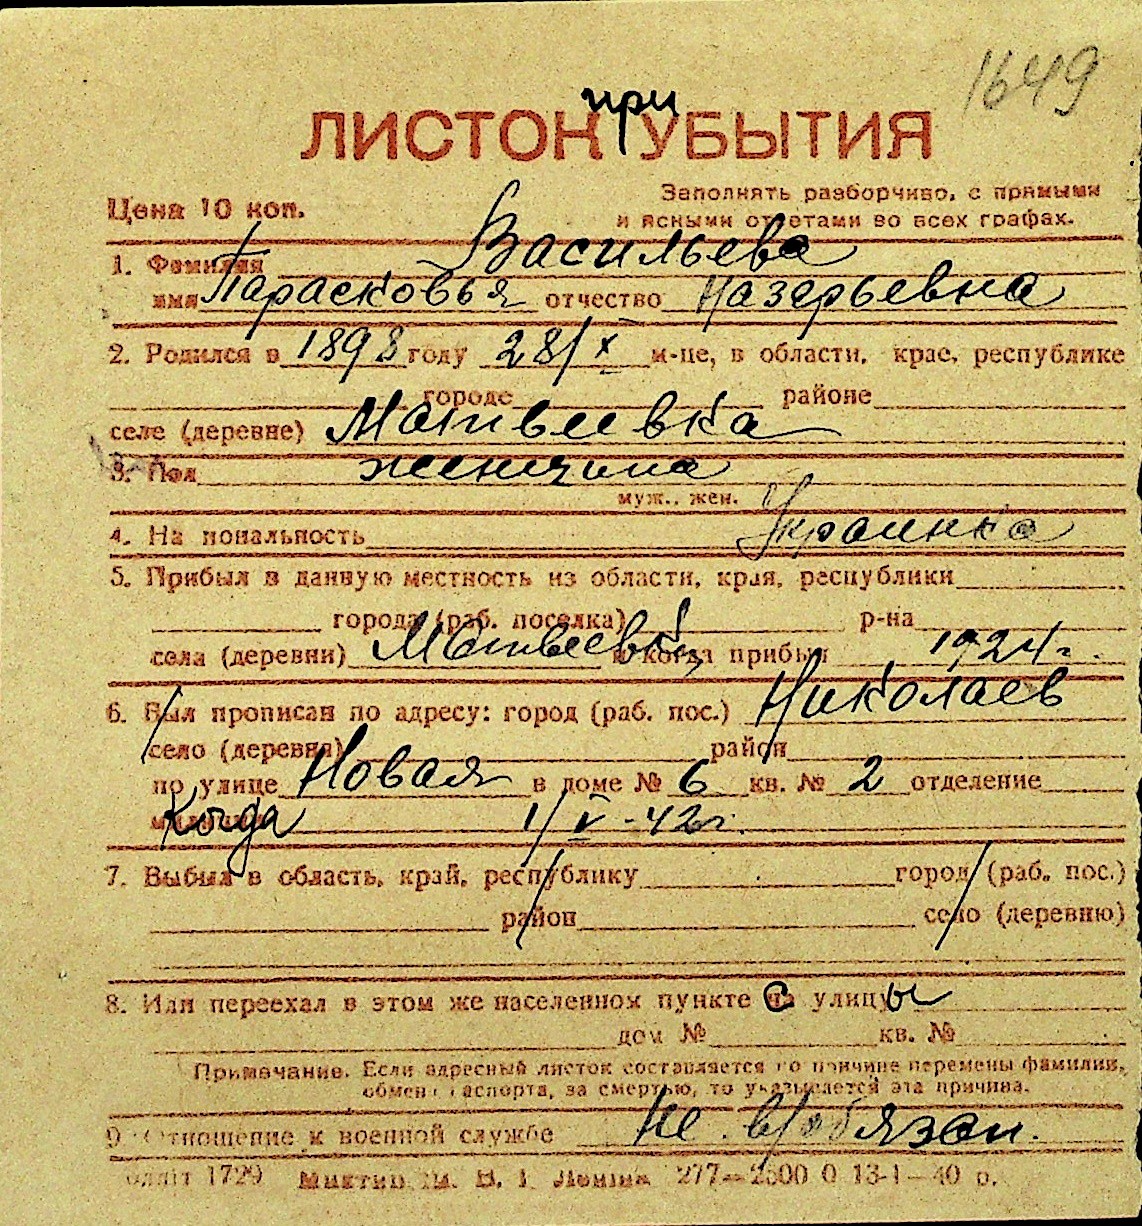 1649
при
ЛИСТОК УБЫТИЯ
Цена 10 коп.
Заполнять разборчиво, с прямыми
и ясными ответами во всех графах.
1. Фамилия Васильева
имя Парасковья отчество Назарьевна
2. Родился в 1898 году 28/X м-це, в области, крае, республике
городе районе
селе (деревне) Матвеевка
3. Пол женщина
муж., жен.
4. Национальность Украинка
5. Прибыл в данную местность из области, края, республики
города (раб. поселка) р-на
села (деревни) Матвеевка и когда прибыл 1924 г.
6. Был прописан по адресу: город (раб. пос.) Николаев
село (деревня) район
по улице Новая в доме № 6 кв. № 2 отделение
Когда 1/V-42 г.
7. Выбыл в область, край, республику город (раб. пос.)
район село (деревню)
8. Или переехал в этом же населенном пункте с улицы
дом № кв. №
Примечание. Если адресный листок составляется по причине перемены фамилии,
обмена паспорта, за смертью, то указывается эта причина.
9. Отношение к военной службе не в/обязан.
1729 277—2500 0 13-I—40 р.